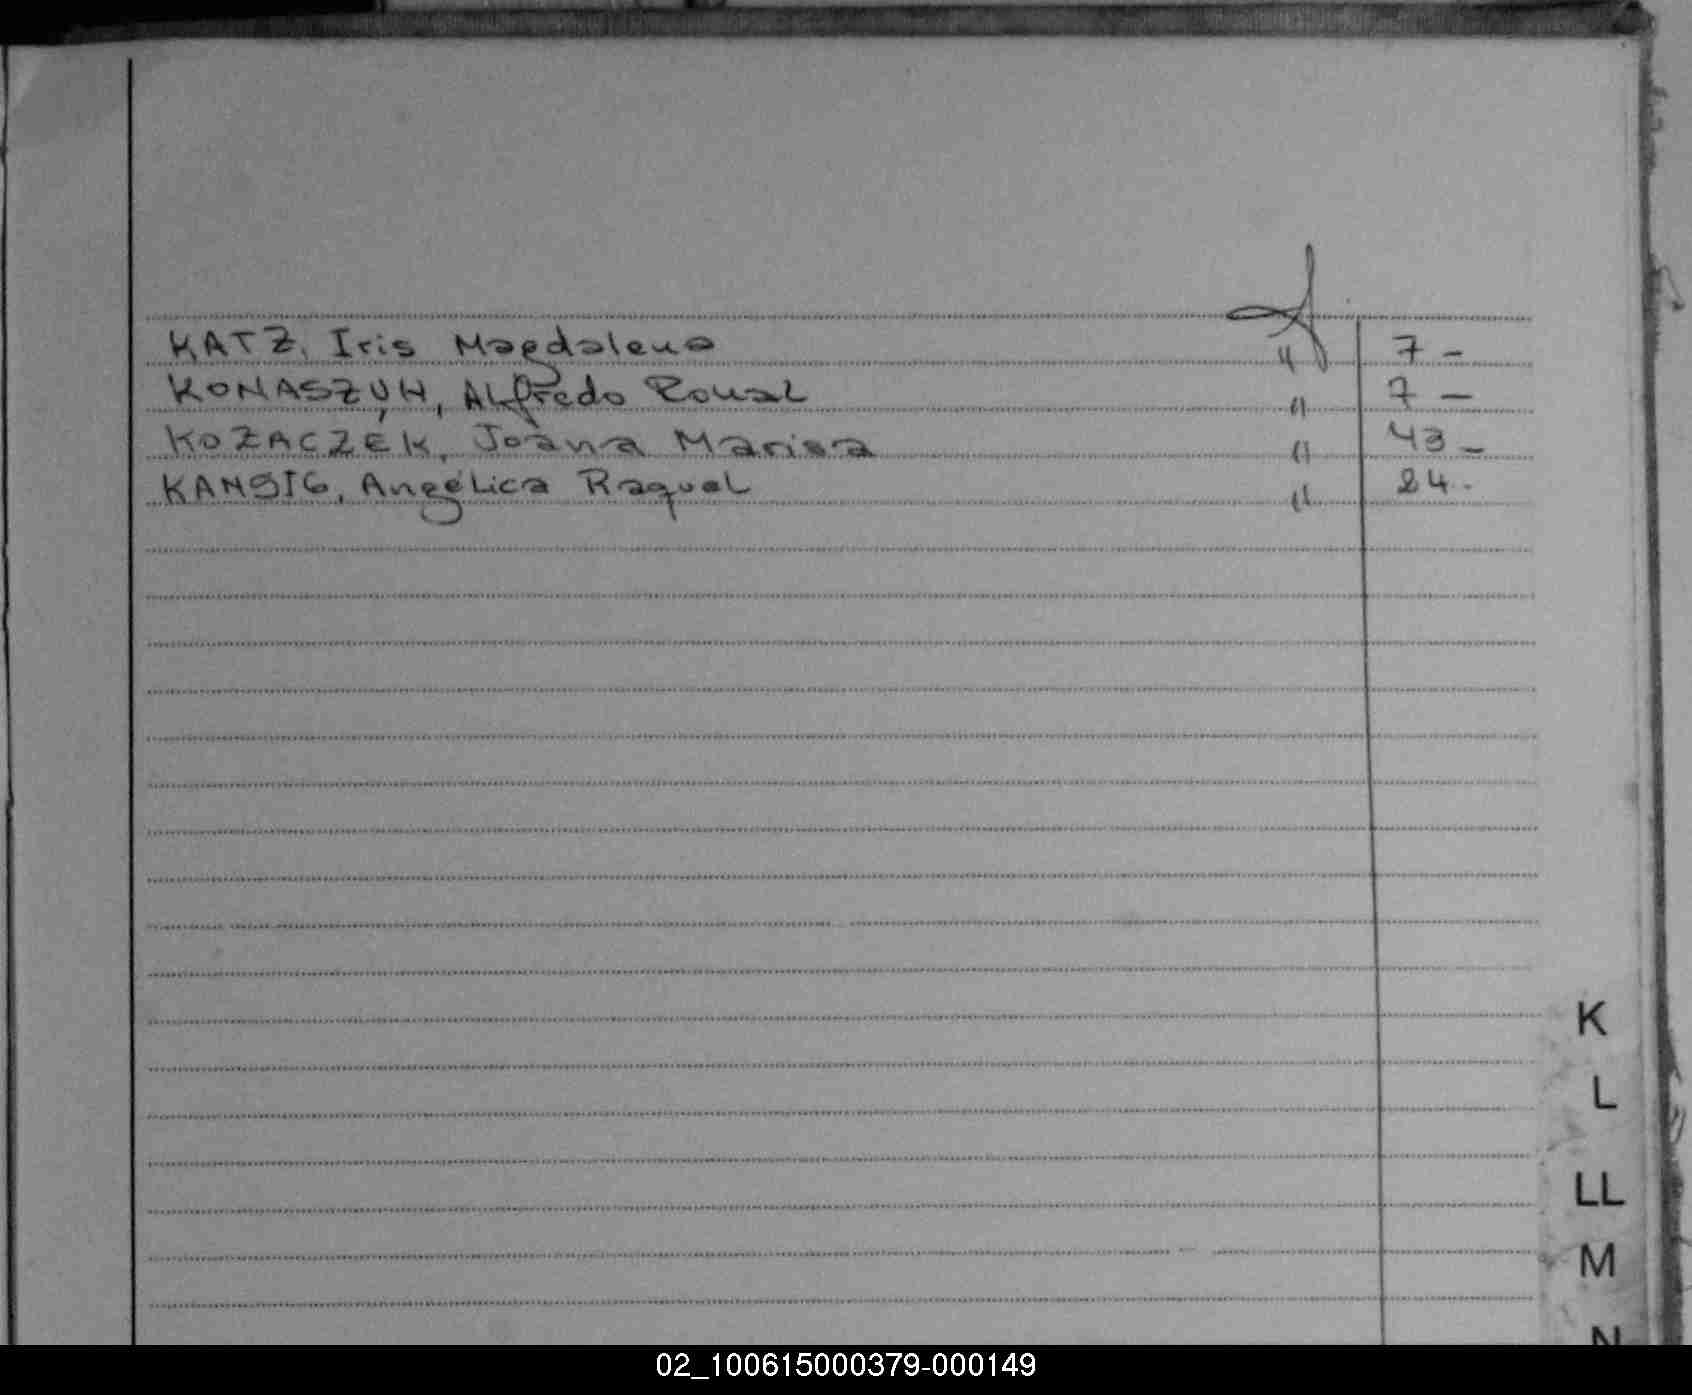 KATZ, Iris Magdalena " 7 -
KONASZUK, Alfredo " 7 -
KOZACZEK, Joana Marisa " 43 -
KANSIG, Angélica Raquel " 24 -
K
L
LL
M
N
02_100615000379-000149